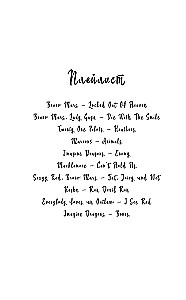 Плейлист
Bruno Mars – Locked Out Of Heaven
Bruno Mars, Lady Gaga – Die With The Smile
Twenty One Pilots – Heathens
Maroon 5 – Animals
Imagine Dragons – Enemy
Macklemore – Can't Hold Us
Sexyy Red, Bruno Mars – Fat, Juicy and Wet
Kesha – Run Devil Run
Everybody Loves an Outlaw – I See Red
Imagine Dragons – Bones